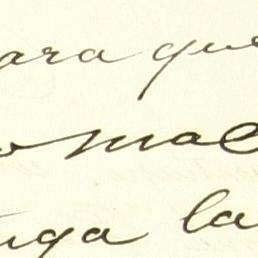 para que
o mal
tuga la